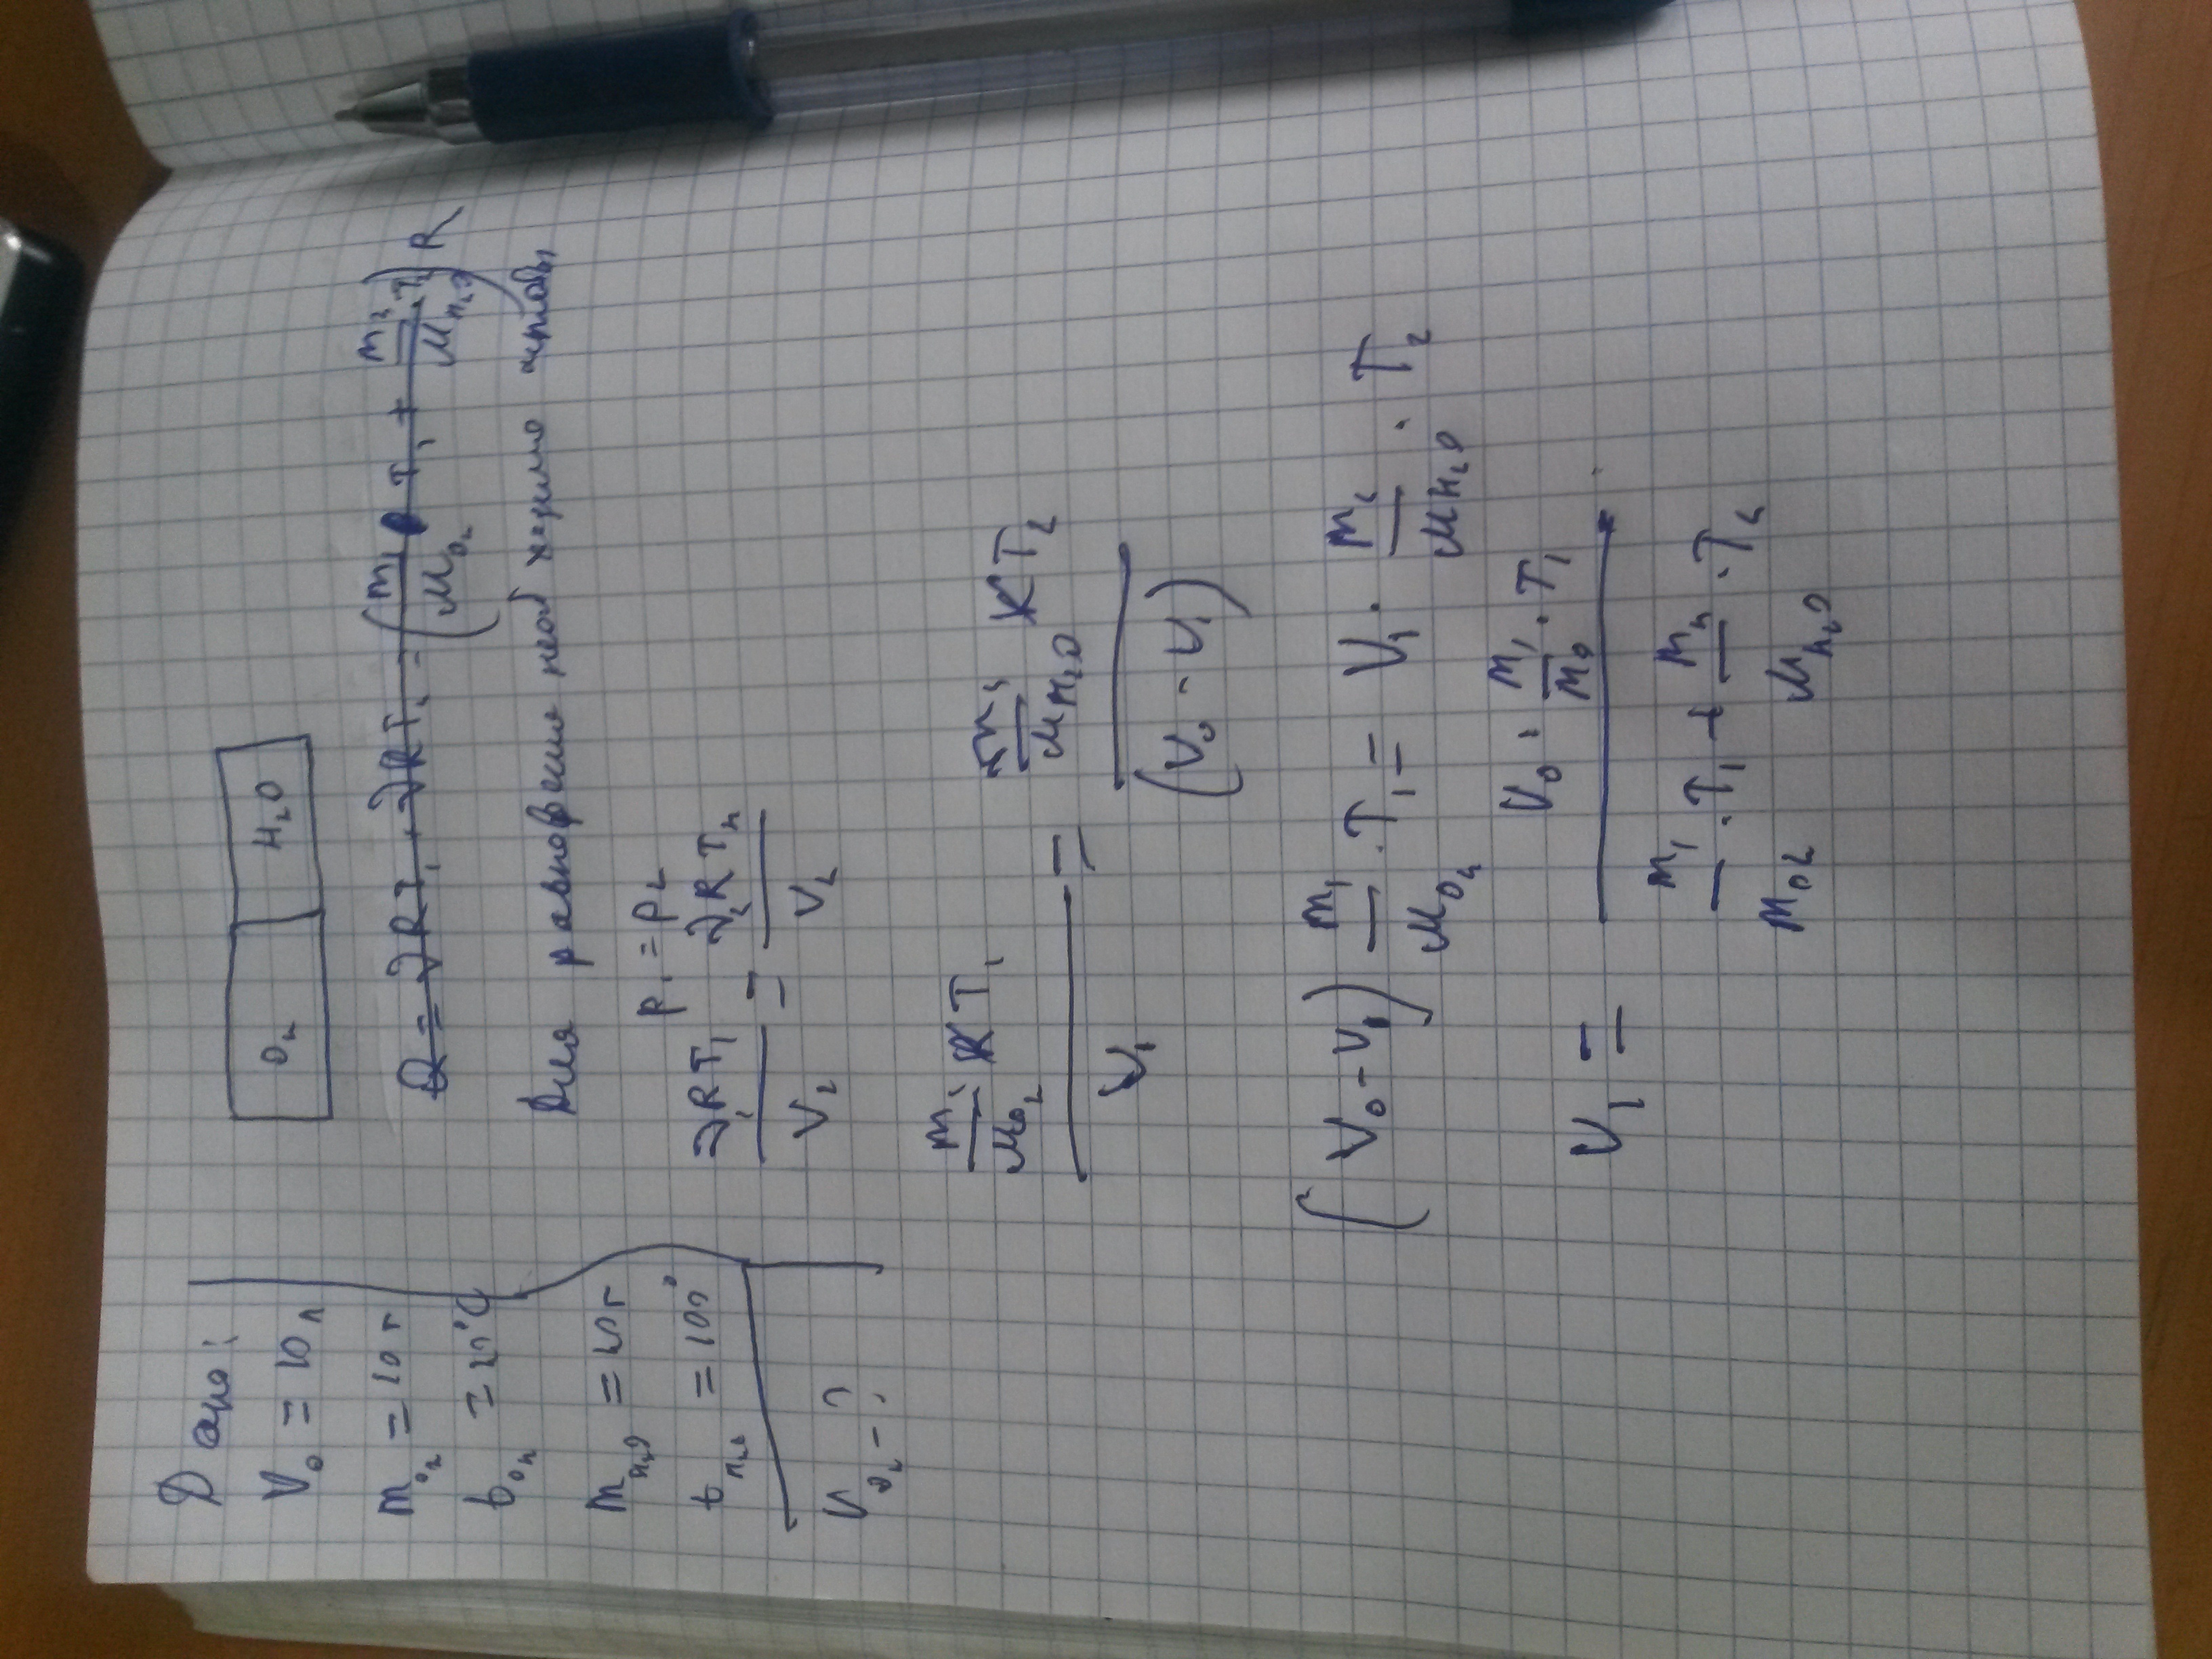 Дано:
V₀ = 10 л
m_O₂ = 10 г
t_O₂ = 20°C
m_H₂O = 20 г
t_H₂O = 100°
V_O₂ - ?
O₂ H₂O
Q = νRT₁ + νRT₂ = (m₁/μ_O₂ T₁ + m₂/μ_H₂O · T₂) R
Для равновесия необходимо чтобы
p₁ = p₂
ν₁RT₁/V₂ = ν₂RT₂/V₂
(m₁/μ_O₂ RT₁)/V₁ = (m₂/μ_H₂O RT₂)/(V₀ - V₁)
(V₀ - V₁) m₁/μ_O₂ · T₁ = V₁ · m₂/μ_H₂O · T₂
V₁ = (V₀ · m₁/M₀ · T₁)/(m₁/M_O₂ · T₁ + m₂/μ_H₂O · T₂)